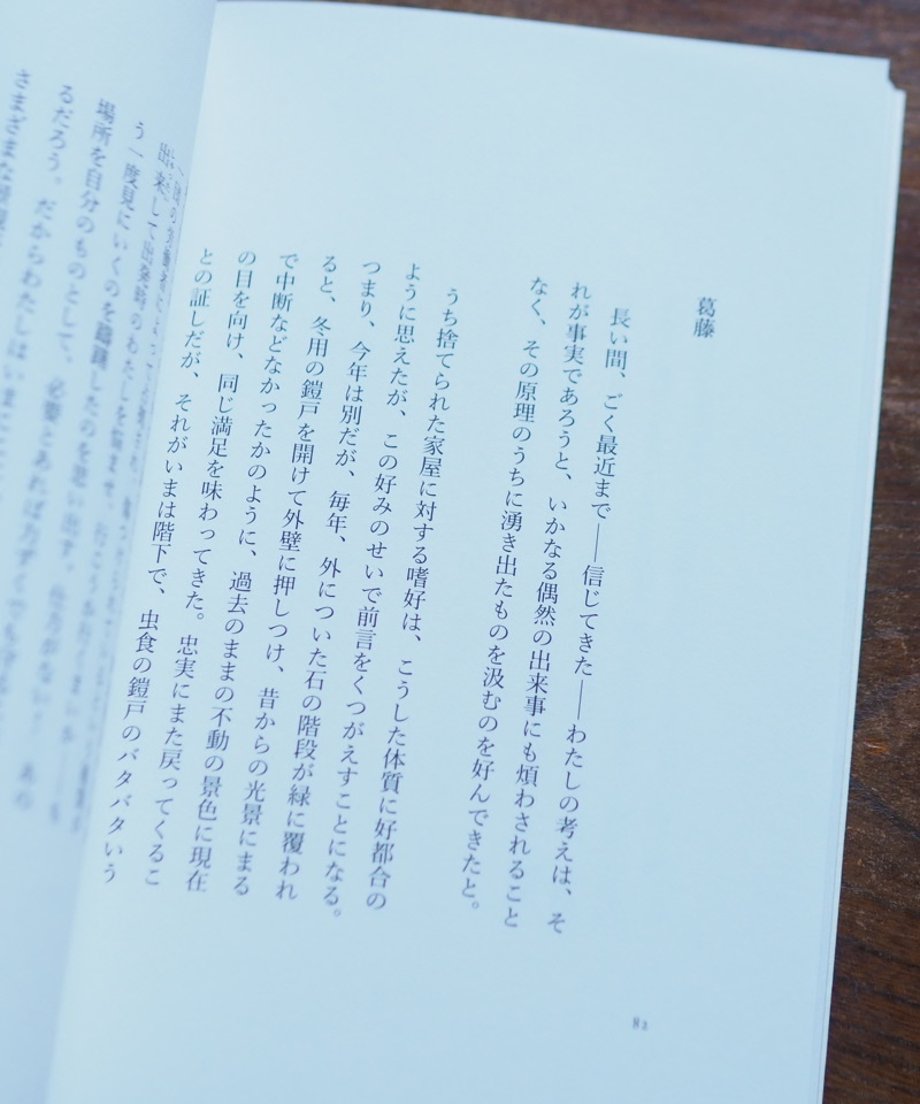 葛藤
長い間、ごく最近まで――信じてきた――わたしの考えは、そ
れが事実であろうと、いかなる偶然の出来事にも煩わされること
なく、その原理のうちに湧き出たものを汲むのを好んできたと。
うち捨てられた家屋に対する嗜好は、こうした体質に好都合の
ように思えたが、この好みのせいで前言をくつがえすことになる。
つまり、今年は別だが、毎年、外についた石の階段が緑に覆われ
ると、冬用の鎧戸を開けて外壁に押しつけ、昔からの光景にまる
で中断などなかったかのように、過去のままの不動の景色に現在
の目を向け、同じ満足を味わってきた。忠実にまた戻ってくるこ
との証しだが、それがいまは階下で、虫食の鎧戸のバタバタいう
82
う一度見にいくのを躊躇したのを思い出す。
場所を自分のものとして、必要とあれば力ずくでも
るだろう。だからわたしはいまここ
さまざまな